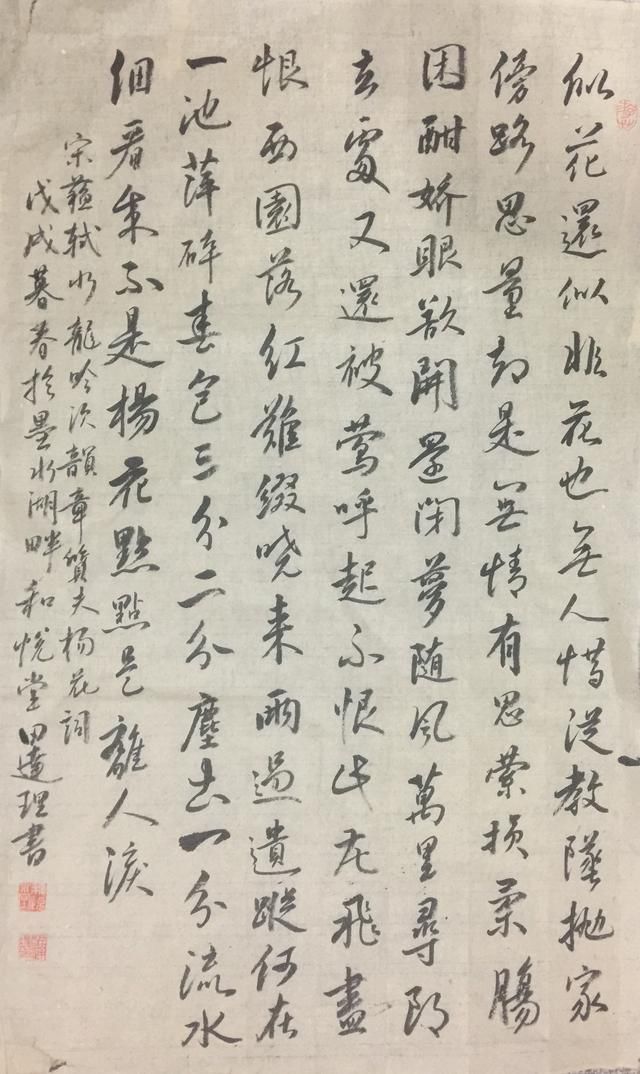 似花還似非花也無人惜從教墜拋家
傍路思量却是無情有思縈損柔腸
困酣嬌眼欲開還閉夢隨風萬里尋郎
去處又還被鶯呼起不恨此花飛盡
恨西園落紅難綴曉来雨過遺蹤何在
一池萍碎春色三分二分塵土一分流水
細看来不是楊花點點是離人淚
宋蘇軾水龍吟次韻章質夫杨花詞
戊戌暮春於墨水湖畔和悅堂田達理書